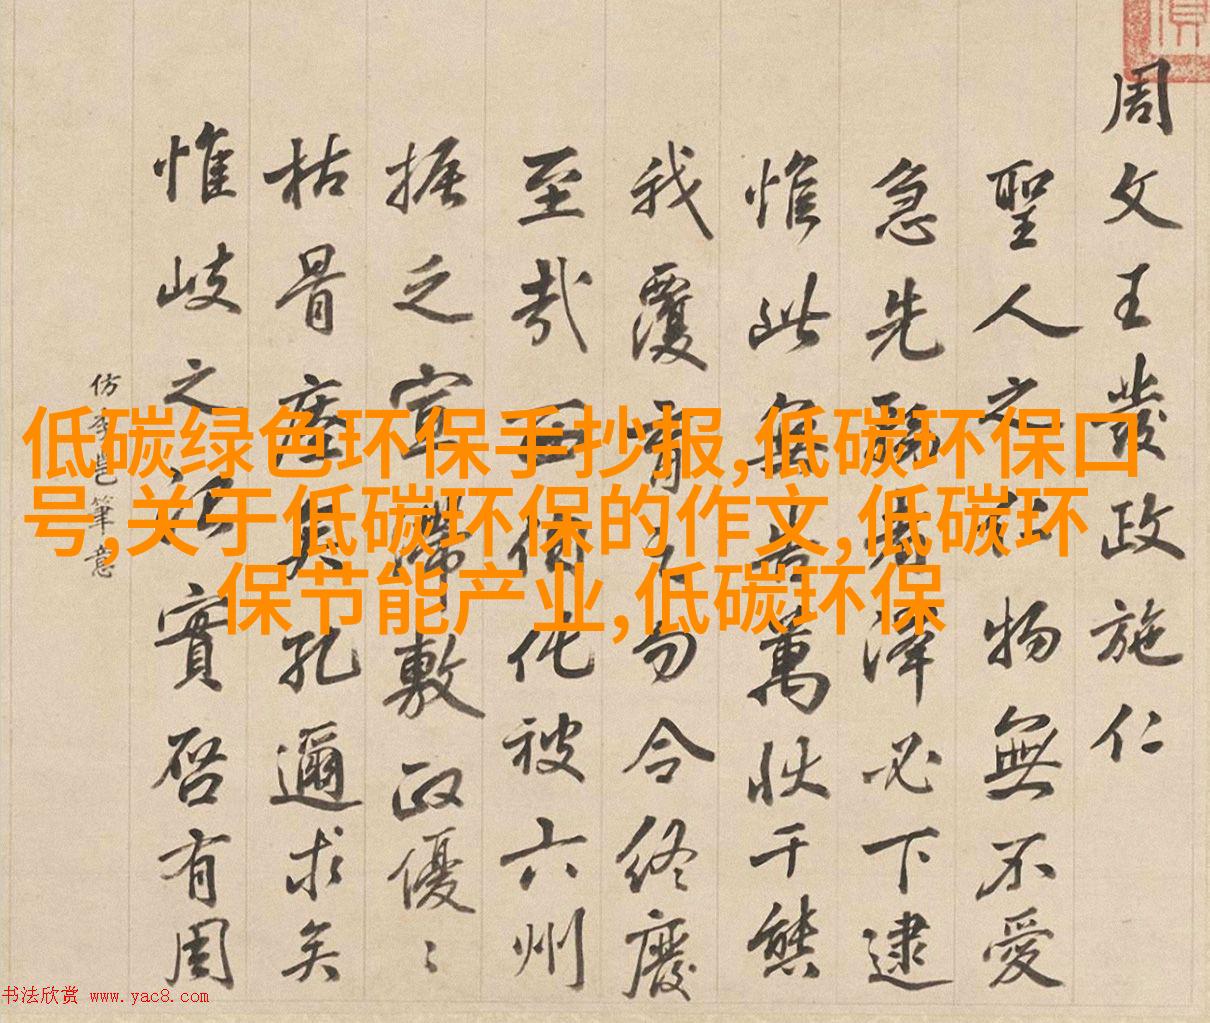 周文王發政施仁
聖人之於物無不愛
急先務者澤必下逮
惟此無告萬狀千態
我覆育之勿令終廢
至哉西伯化被六州
振之窮敷政優〻
枯骨瘗其孔邇求矣
惟岐之治實啓有周
仿李邕筆意
低碳绿色环保手抄报,低碳环保口
号,关于低碳环保的作文,低碳环
保节能产业,低碳环保
书法欣赏 www.yac8.com